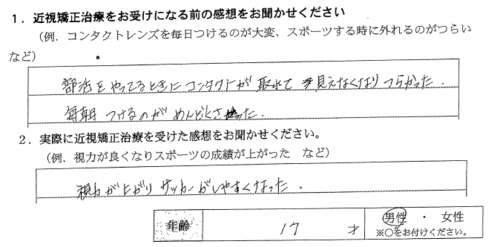 1．近視矯正治療をお受けになる前の感想をお聞かせください
（例．コンタクトレンズを毎日つけるのが大変、スポーツする時に外れるのがつらい
など）
部活をやってるときにコンタクトが取れて見えなくなりつらかった．
毎朝つけるのがめんどくさかった．
2．実際に近視矯正治療を受けた感想をお聞かせください。
（例．視力が良くなりスポーツの成績が上がった など）
視力が上がりサッカーがしやすくなった．
年齢 17 才 男性 ・ 女性
※○をお付けください。